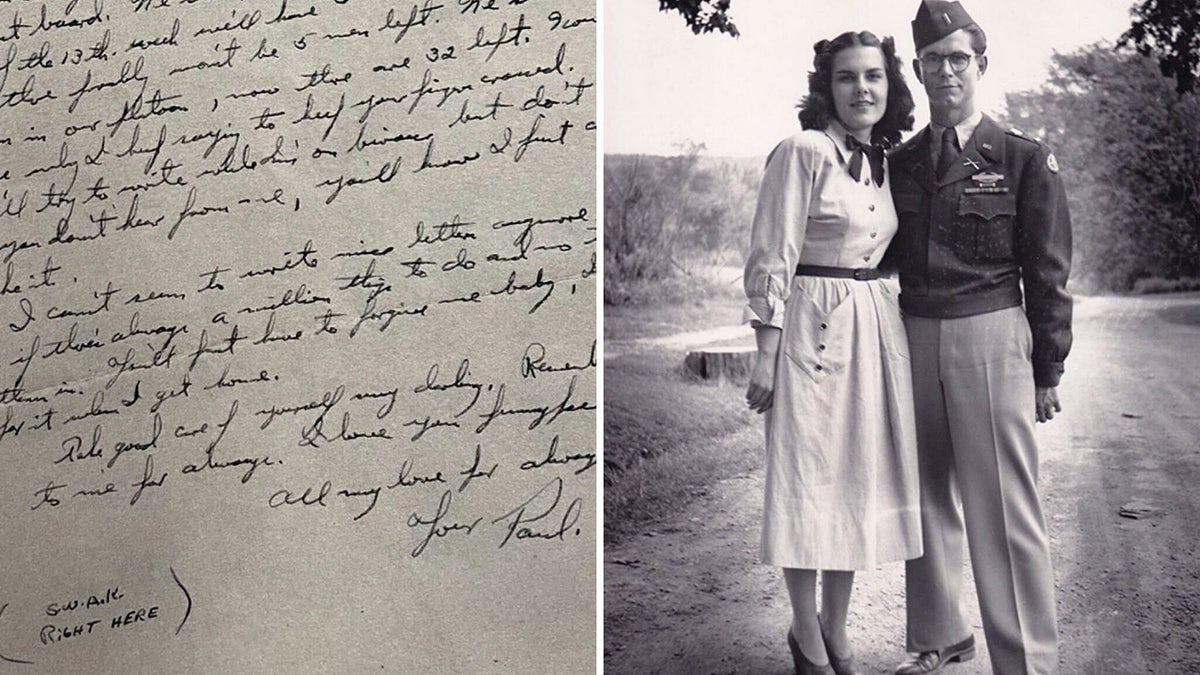 t board. We
f the 13th. week we'll have
there finally won't be 5 men left. We
in our platoon, now there are 32 left.
why I keep saying to keep your fingers crossed.
I'll try to write while he's on bivouac but don't
you don't hear from me, you'll know I just
he it.
I can't seem to write nice letters anymore
if there's always a million things to do and no
them in. You'll just have to forgive me baby, I
for it when I get home.
Take good care of yourself my darling. Rememb
to me for always. I love you funny face
All my love for alway
Your Paul.
(S.W.A.K.
RIGHT HERE)